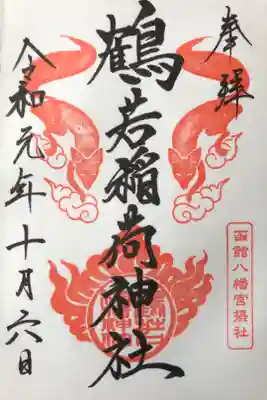 奉拝
鶴若稲荷神社
令和元年十月六日
函館八幡宮摂社